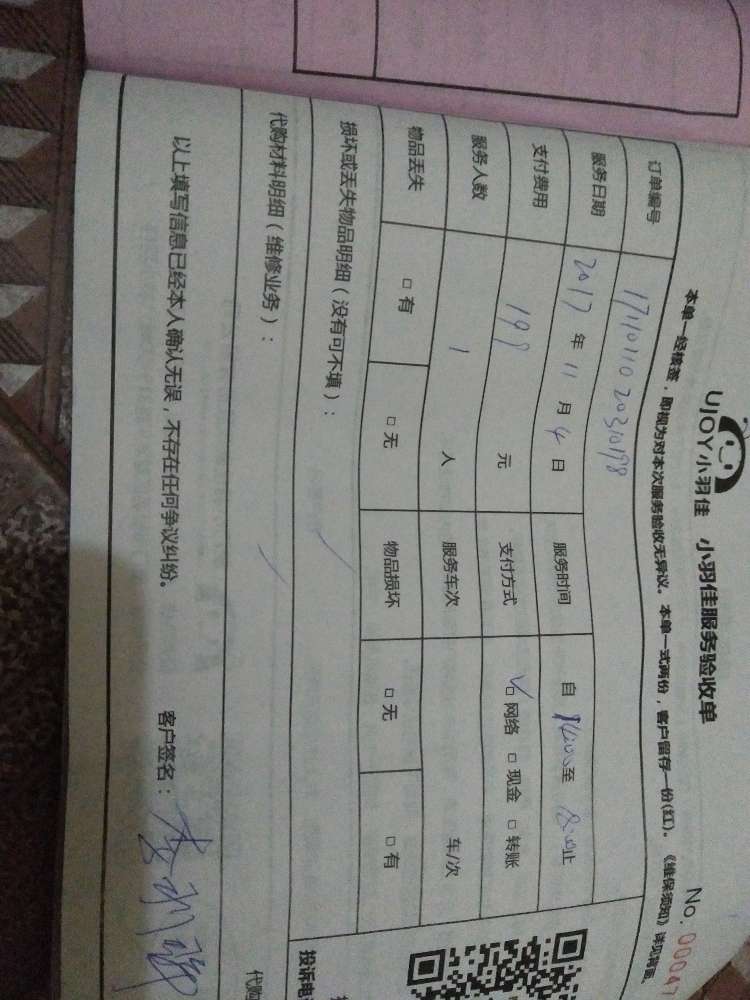 UJOY小羽佳 小羽佳服务验收单
No. 00047
本单一经核签，即视为对本次服务验收无异议。本单一式两份，客户留存一份(红)。《维保须知》详见背面。
订单编号 1711011020310198
服务日期 2017 年 11 月 4 日 服务时间 自 至 止
支付费用 198 元 支付方式 ☑网络 □现金 □转账
服务人数 1 人 服务车次 车/次
物品丢失 □有 □无 物品损坏 □无 □有
损坏或丢失物品明细（没有可不填）：
代购材料明细（维修业务）：
代购
以上填写信息已经本人确认无误，不存在任何争议纠纷。 客户签名：
投诉电